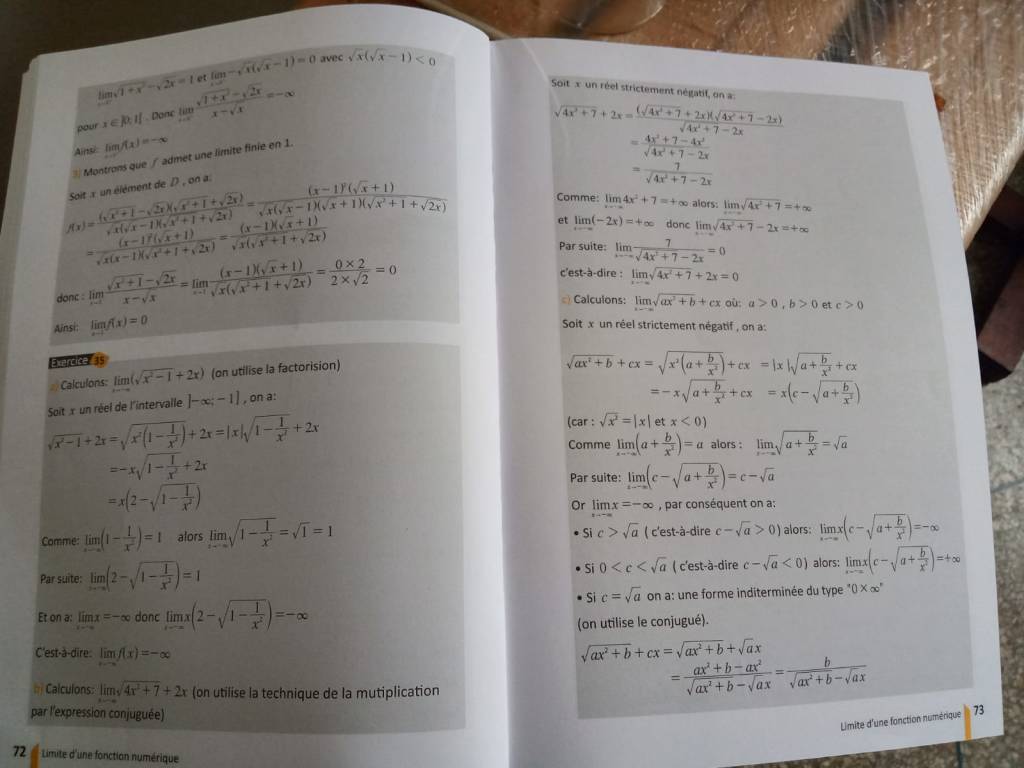 lim √(1+x²) − √(2x) = 1 et lim −√x(√x − 1) = 0 avec √x(√x − 1) < 0
pour x ∈ ]0;1[ . Donc lim (√(1+x²) − √(2x))/(x − √x) = −∞
Ainsi: lim f(x) = −∞
3) Montrons que f admet une limite finie en 1.
Soit x un élément de D , on a:
f(x) = (√(x²+1) − √(2x))(√(x²+1) + √(2x))/(√x(√x − 1)(√(x²+1) + √(2x))) = (x−1)²(√x+1)/(√x(√x−1)(√x+1)(√(x²+1) + √(2x)))
= (x−1)²(√x+1)/(√x(x−1)(√(x²+1) + √(2x))) = (x−1)(√x+1)/(√x(√(x²+1) + √(2x)))
donc : lim x→1 (√(x²+1) − √(2x))/(x − √x) = lim x→1 (x−1)(√x+1)/(√x(√(x²+1) + √(2x))) = (0×2)/(2×√2) = 0
Ainsi: lim x→1 f(x) = 0
Exercice 35
a) Calculons: lim x→−∞ (√(x²−1) + 2x) (on utilise la factorision)
Soit x un réel de l'intervalle ]−∞; −1] , on a:
√(x²−1) + 2x = √(x²(1 − 1/x²)) + 2x = |x|√(1 − 1/x²) + 2x
= −x√(1 − 1/x²) + 2x
= x(2 − √(1 − 1/x²))
Comme: lim x→−∞ (1 − 1/x²) = 1 alors lim x→−∞ √(1 − 1/x²) = √1 = 1
Par suite: lim x→−∞ (2 − √(1 − 1/x²)) = 1
Et on a: lim x→−∞ x = −∞ donc lim x→−∞ x(2 − √(1 − 1/x²)) = −∞
C'est-à-dire: lim x→−∞ f(x) = −∞
b) Calculons: lim x→−∞ √(4x²+7) + 2x (on utilise la technique de la mutiplication
par l'expression conjuguée)
72 Limite d'une fonction numérique
Soit x un réel strictement négatif, on a:
√(4x²+7) + 2x = (√(4x²+7) + 2x)(√(4x²+7) − 2x)/(√(4x²+7) − 2x)
= (4x²+7−4x²)/(√(4x²+7) − 2x)
= 7/(√(4x²+7) − 2x)
Comme: lim x→−∞ 4x²+7 = +∞ alors: lim x→−∞ √(4x²+7) = +∞
et lim x→−∞ (−2x) = +∞ donc lim x→−∞ √(4x²+7) − 2x = +∞
Par suite: lim x→−∞ 7/(√(4x²+7) − 2x) = 0
c'est-à-dire : lim x→−∞ √(4x²+7) + 2x = 0
c) Calculons: lim x→−∞ √(ax²+b) + cx où: a > 0 , b > 0 et c > 0
Soit x un réel strictement négatif , on a:
√(ax²+b) + cx = √(x²(a + b/x²)) + cx = |x|√(a + b/x²) + cx
= −x√(a + b/x²) + cx = x(c − √(a + b/x²))
(car : √(x²) = |x| et x < 0)
Comme lim x→−∞ (a + b/x²) = a alors : lim x→−∞ √(a + b/x²) = √a
Par suite: lim x→−∞ (c − √(a + b/x²)) = c − √a
Or lim x→−∞ x = −∞ , par conséquent on a:
• Si c > √a ( c'est-à-dire c − √a > 0) alors: lim x→−∞ x(c − √(a + b/x²)) = −∞
• Si 0 < c < √a ( c'est-à-dire c − √a < 0) alors: lim x→−∞ x(c − √(a + b/x²)) = +∞
• Si c = √a on a: une forme inditerminée du type "0 × ∞"
(on utilise le conjugué).
√(ax²+b) + cx = √(ax²+b) + √a x
= (ax²+b−ax²)/(√(ax²+b) − √a x) = b/(√(ax²+b) − √a x)
Limite d'une fonction numérique 73